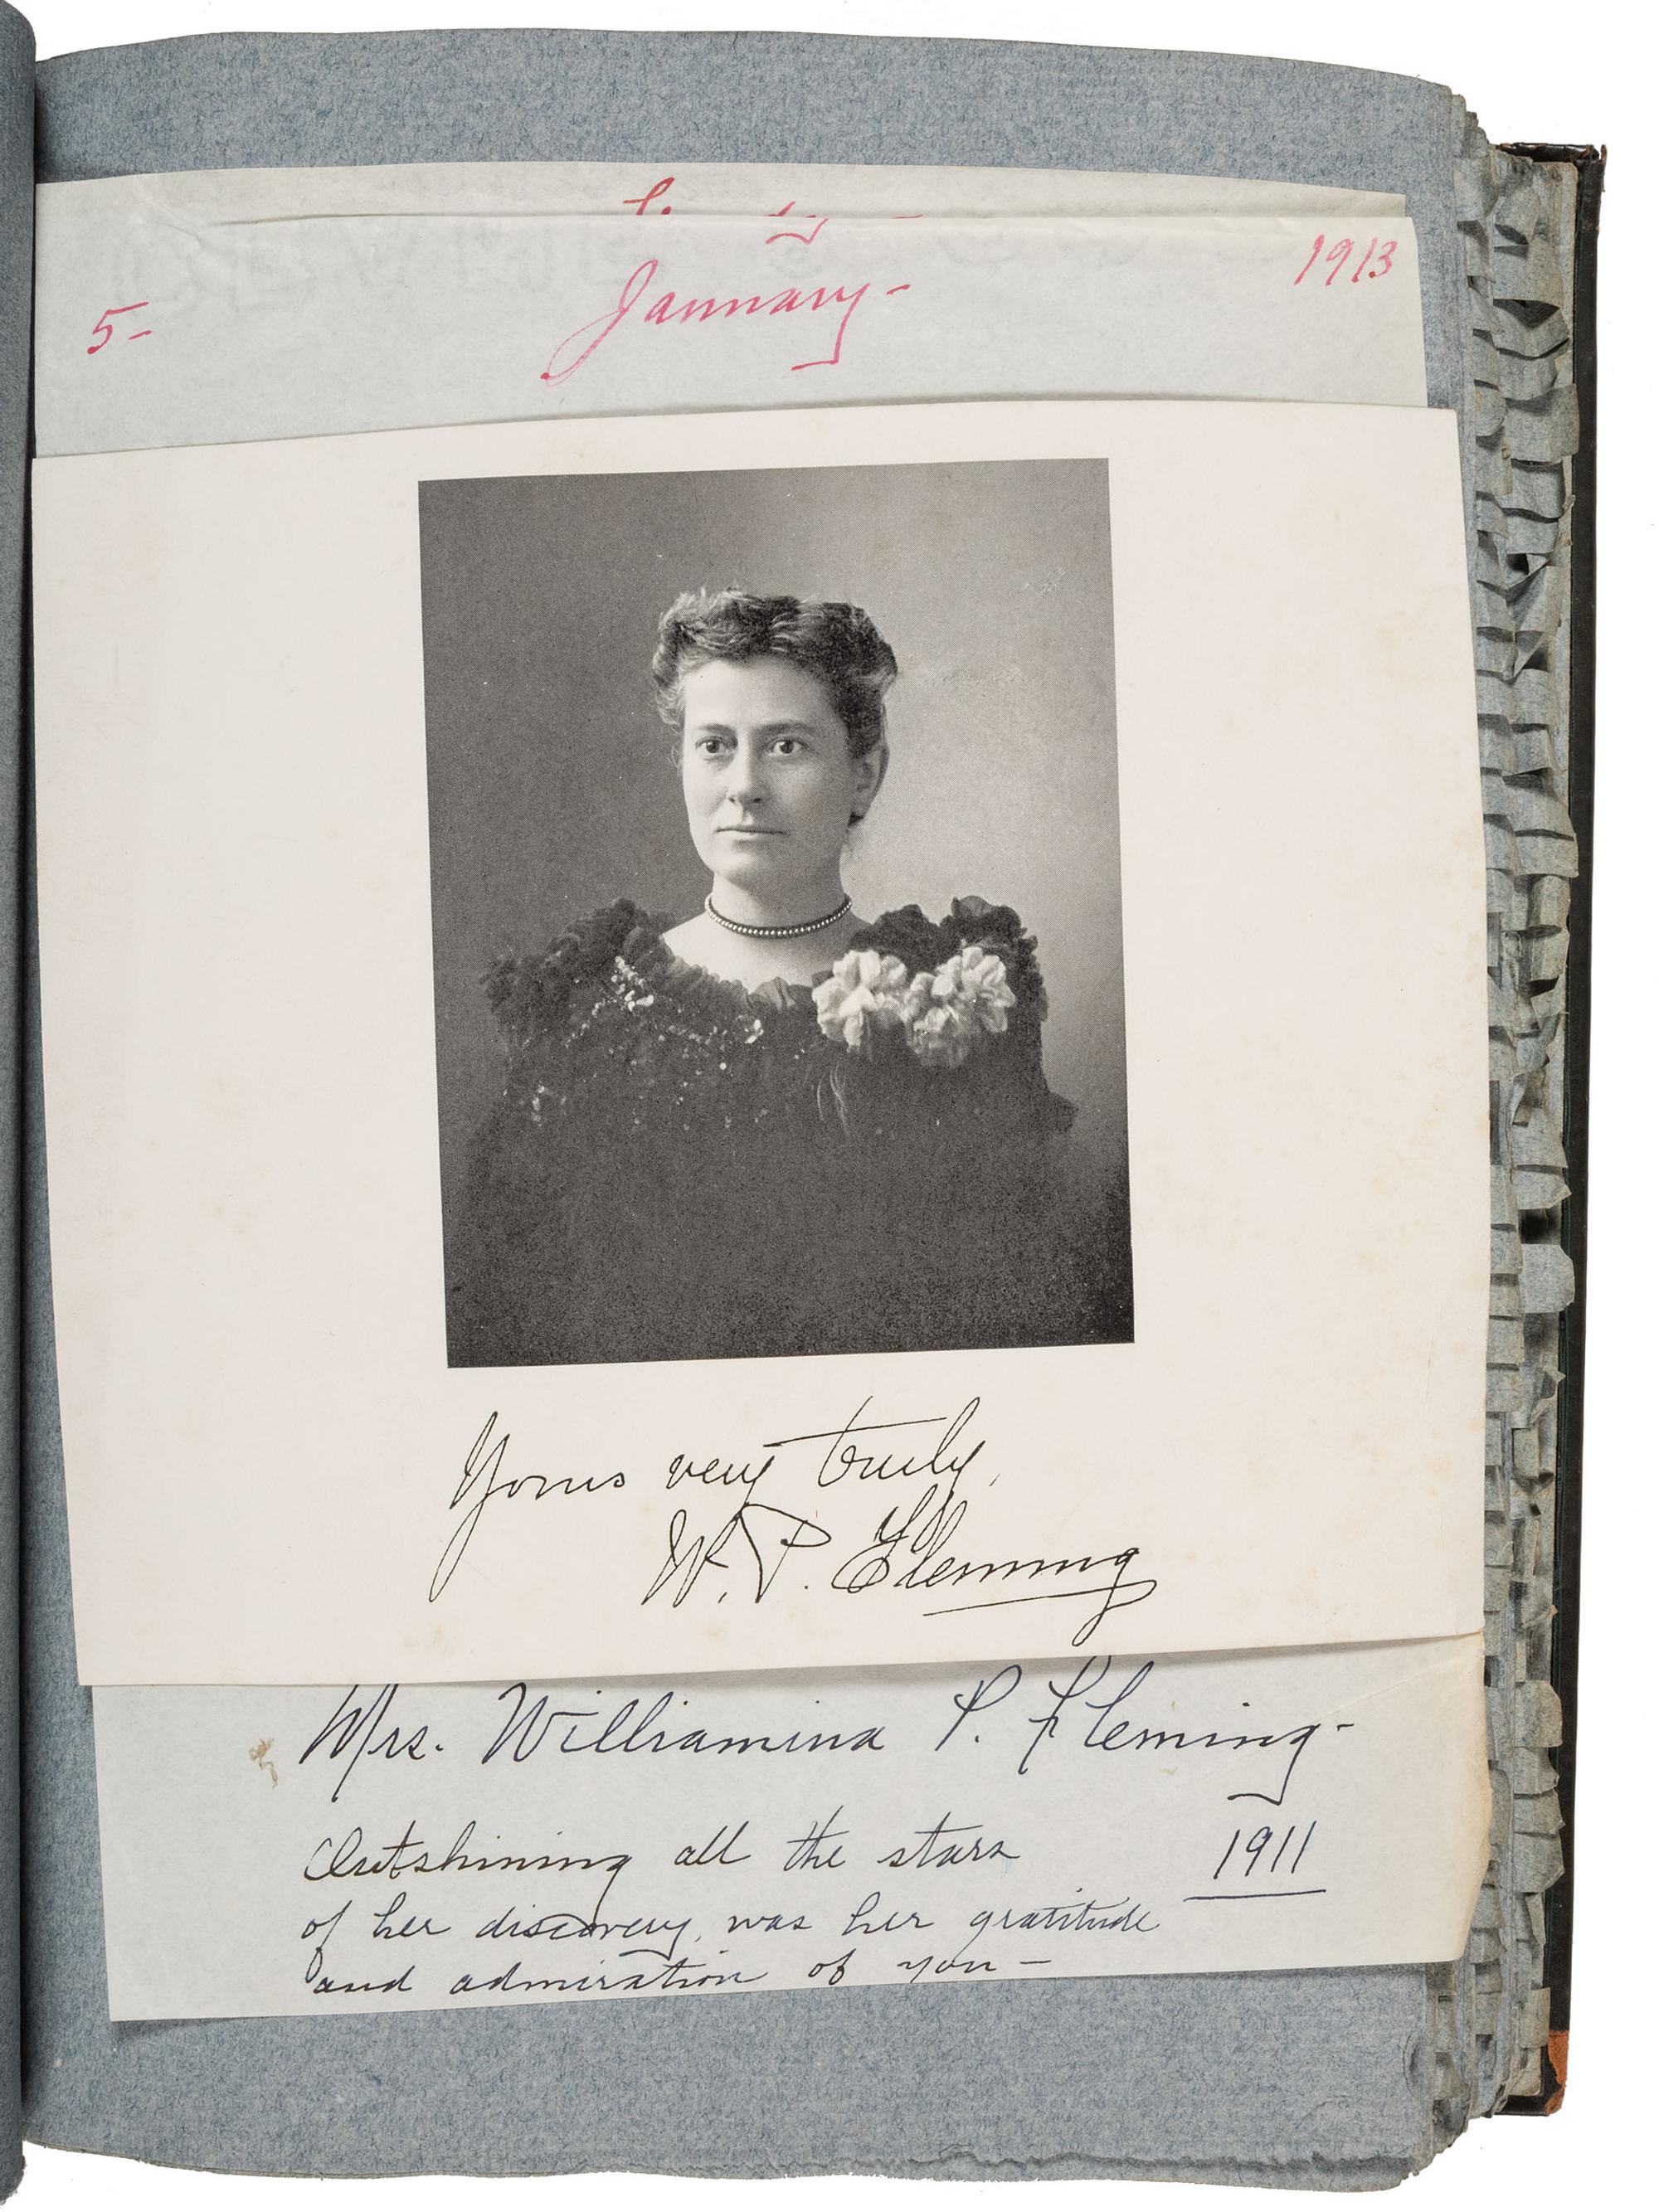 5- January- 1913
Yours very truly,
W. P. Fleming
Mrs. Williamina P. Fleming-
1911
Outshining all the stars
of her discovery, was her gratitude
and admiration of you-